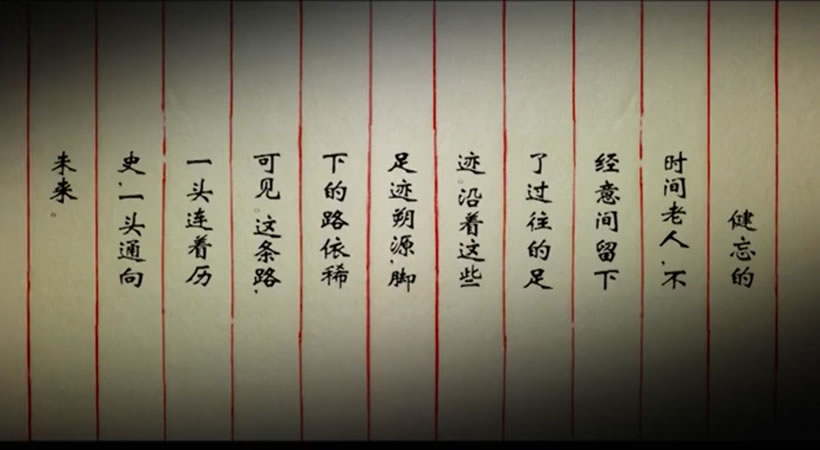 健忘的
时间老人,不
经意间留下
了过往的足
迹。沿着这些
足迹朔源,脚
下的路依稀
可见。这条路,
一头连着历
史,一头通向
未来。